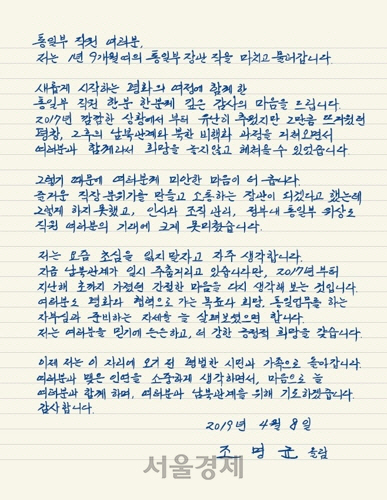 통일부 직원 여러분,
저는 1년 9개월여의 통일부장관 직을 마치고 물러갑니다.
새롭게 시작하는 평화의 여정에 함께 한
통일부 직원 한분 한분께 깊은 감사의 마음을 드립니다.
2017년 캄캄한 상황에서 부터 유난히 추웠지만 그만큼 뜨거웠던
평창, 그후의 남북관계와 북한 비핵화 과정을 거쳐오면서
여러분과 함께라서 희망을 놓지않고 헤쳐올 수 있었습니다.
그렇기 때문에 여러분께 미안한 마음이 더 큽니다.
즐거운 직장 분위기를 만들고 소통하는 장관이 되겠다고 했는데
그렇게 하지 못했고, 인사와 조직 관리, 정부내 통일부 위상도
직원 여러분의 기대에 크게 못미쳤습니다.
저는 요즘 초심을 잃지말자고 자주 생각합니다.
지금 남북관계가 잠시 주춤거리고 있습니다만, 2017년부터
지난해 초까지 가졌던 간절한 마음을 다시 생각해 보는 것입니다.
여러분도 평화와 협력으로 가는 목표와 희망, 통일업무를 하는
자부심과 준비하는 자세를 늘 살펴보셨으면 합니다.
저는 여러분을 믿기에 든든하고, 더 강한 긍정적 희망을 갖습니다.
이제 저는 이 자리에 오기 전 평범한 시민과 가족으로 돌아갑니다.
여러분과 맺은 인연을 소중하게 생각하면서, 마음으로 늘
여러분과 함께 하며, 여러분과 남북관계를 위해 기도하겠습니다.
감사합니다.
2019년 4월 8일
조 명 균 올림
서울경제